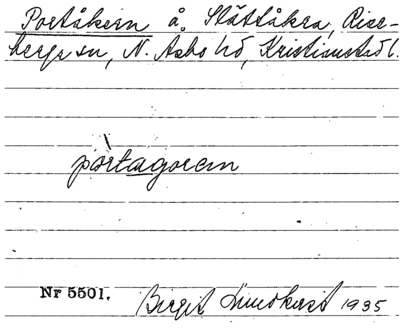 Portåkern å. Slättåkra, Rise-
bergs sn, N. Åsbo hd, Kristianstad l.
pòrtagorem
Nr 5501. Birgit Lundkvist 1935